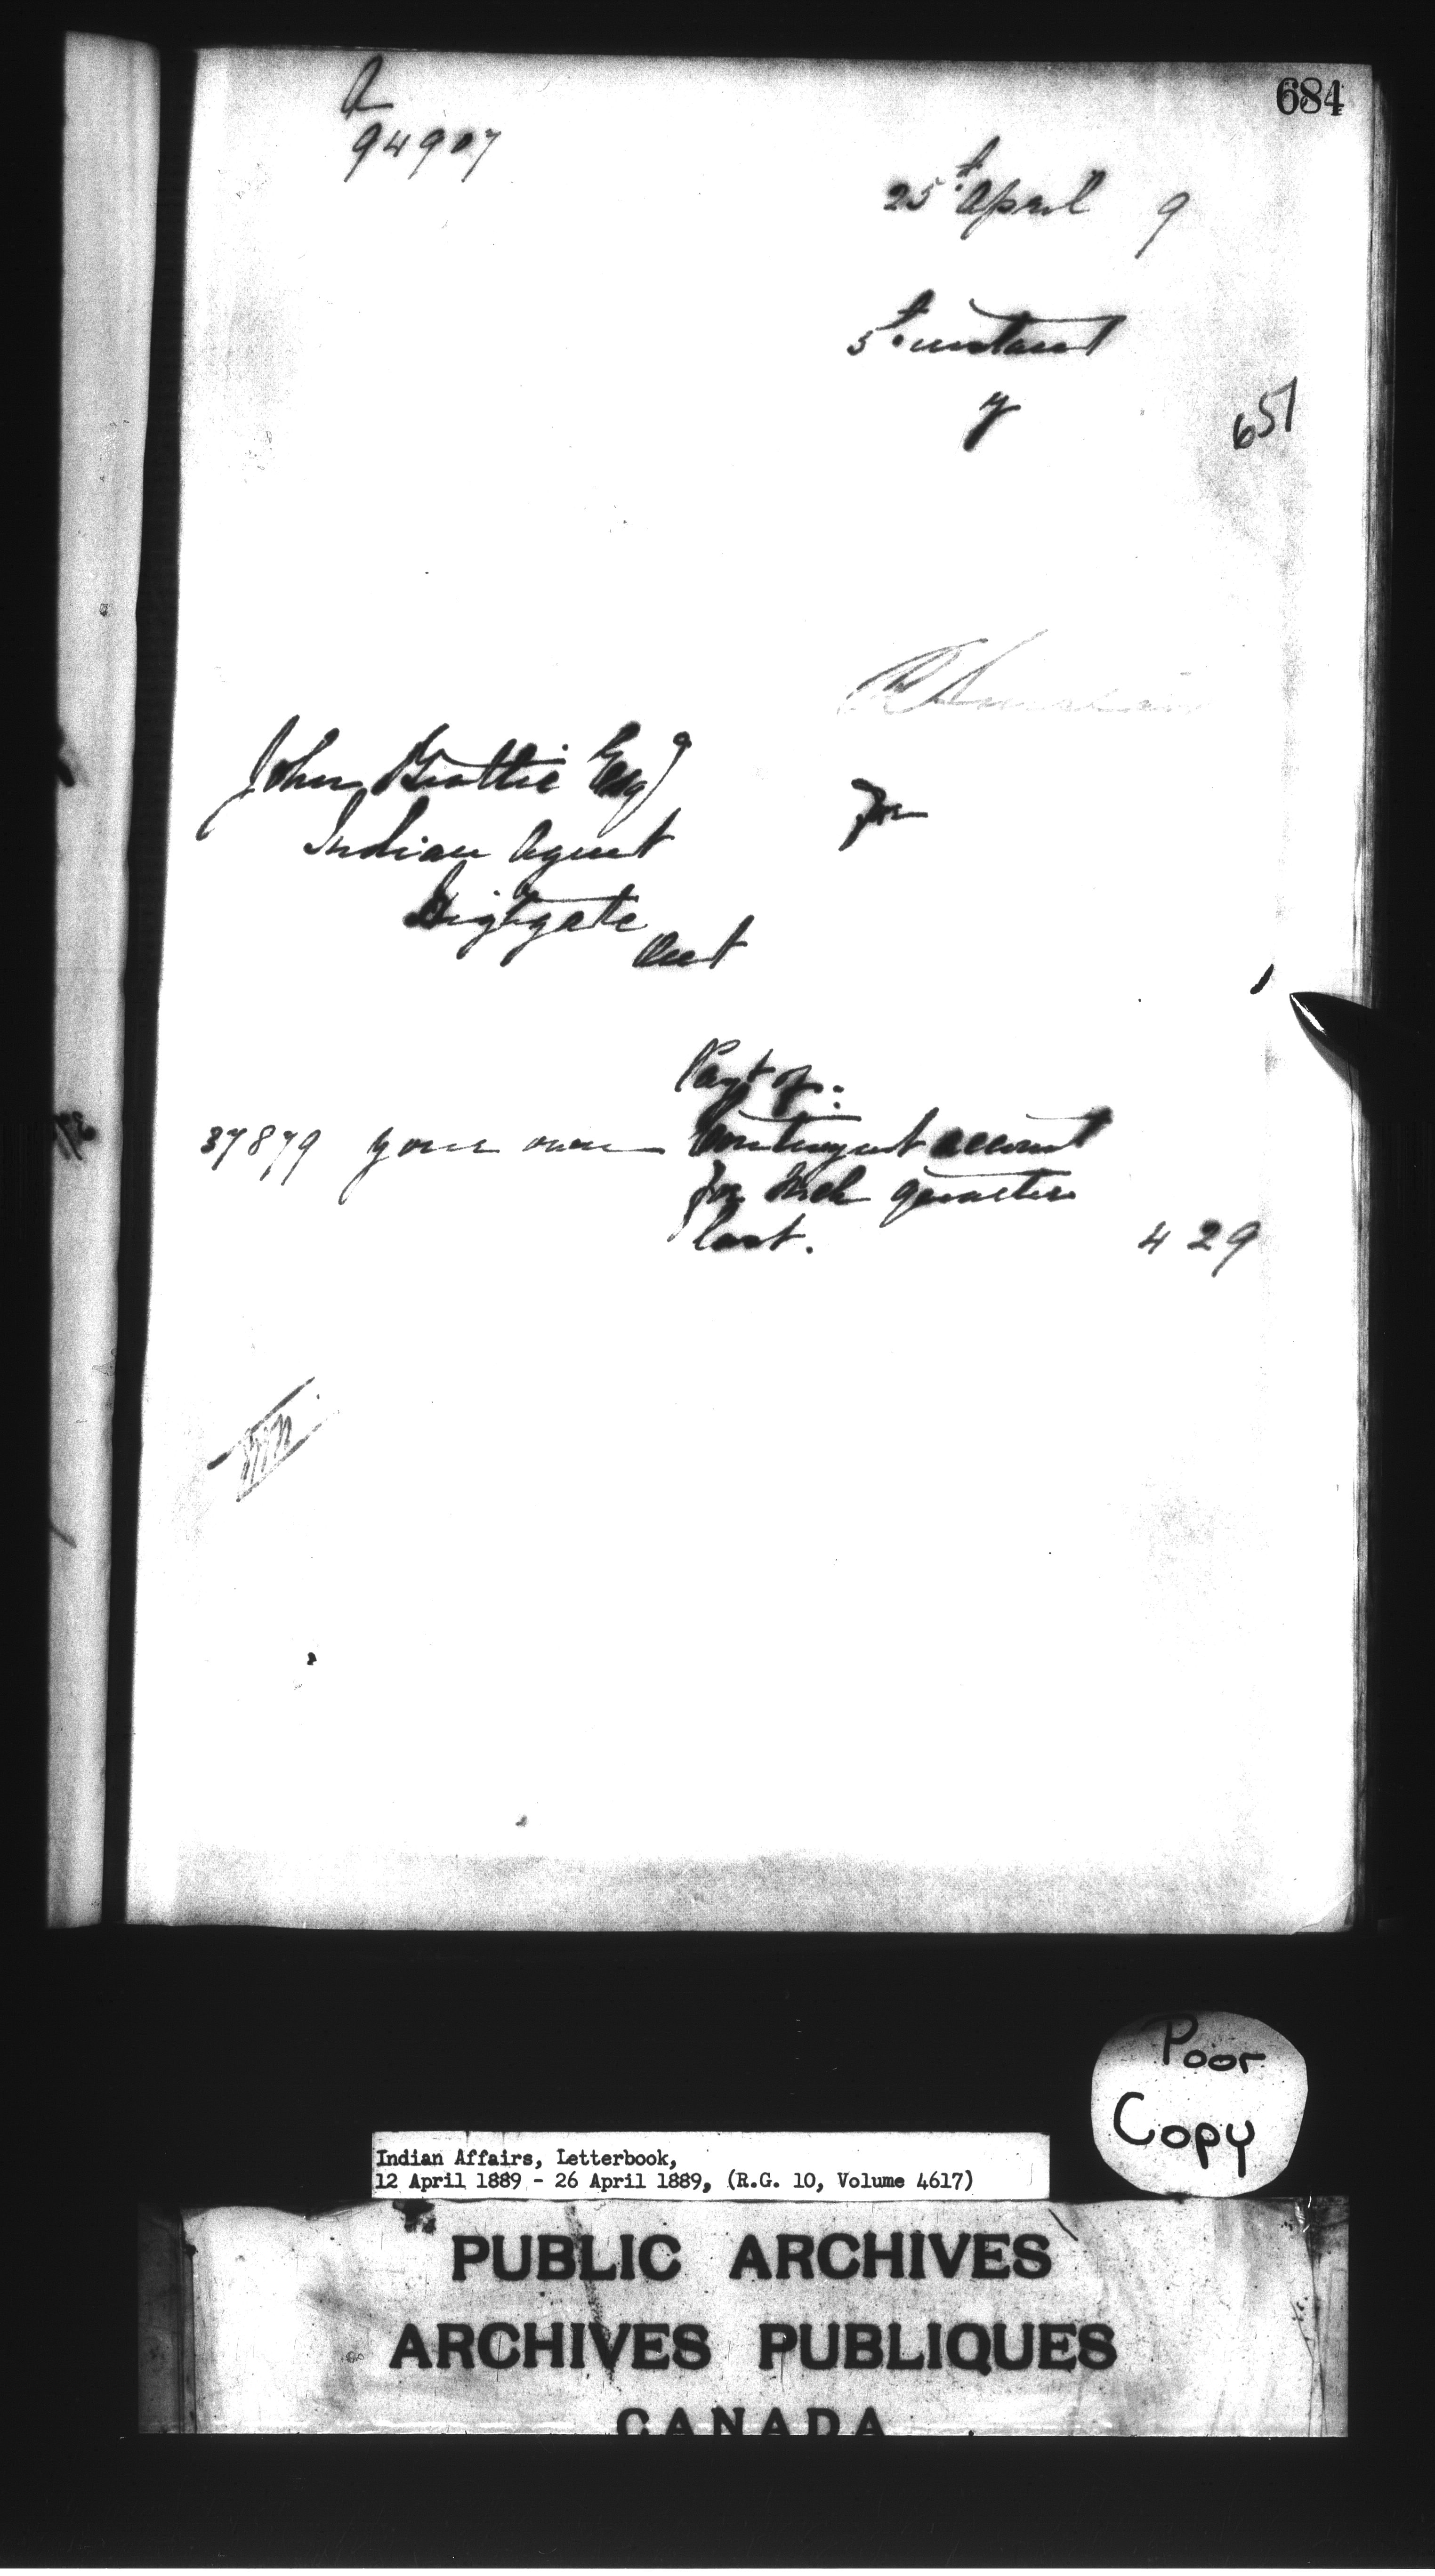 684
A
94907
25t April 9
5t instant
y
651
John Beattie Esqr
For
Indian Agent
Highgate
Ont
Payt of:
37879 your own Contingent account
for Mch quarter
last.
4 29
Poor
Copy
Indian Affairs, Letterbook,
12 April 1889 - 26 April 1889, (R.G. 10, Volume 4617)
PUBLIC ARCHIVES
ARCHIVES PUBLIQUES
CANADA